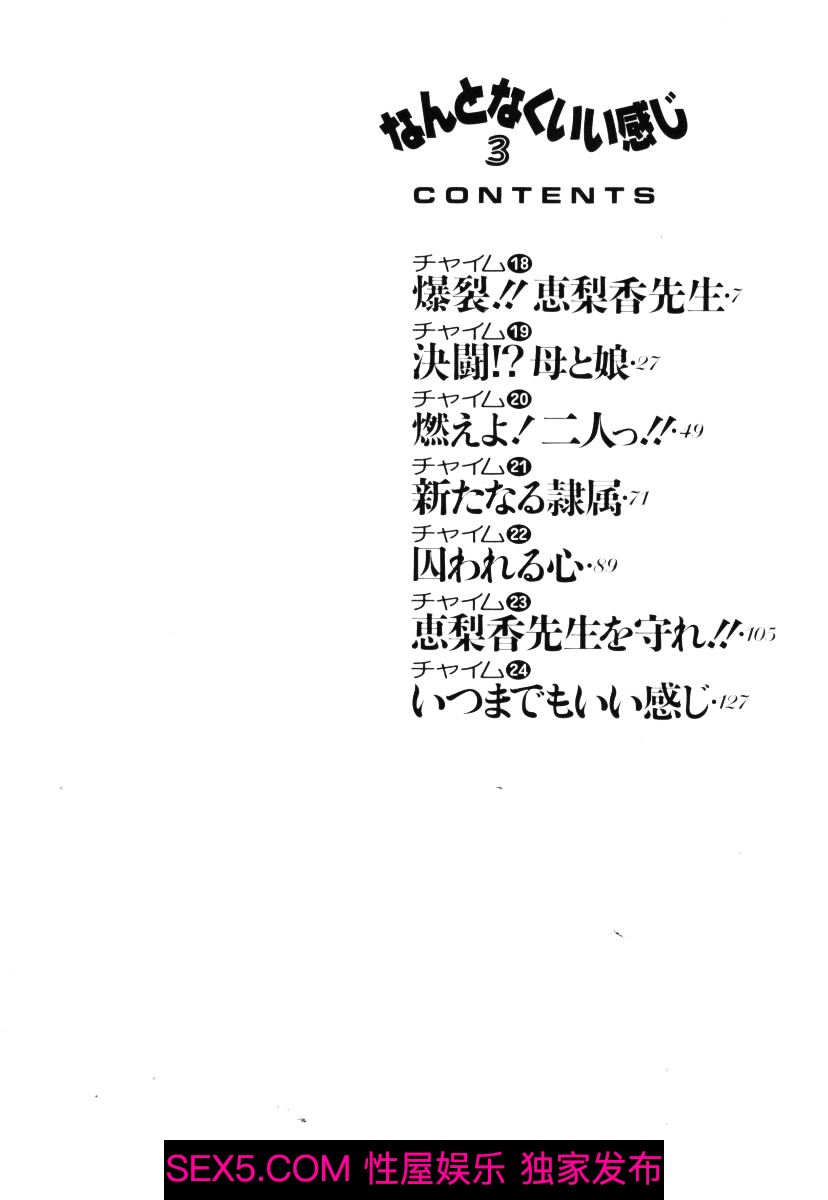 なんとなくいい感じ
3
CONTENTS
チャイム⓲
爆裂!! 恵梨香先生・7
チャイム⓳
決闘!? 母と娘・27
チャイム⓴
燃えよ! 二人っ!!・49
チャイム㉑
新たなる隷属・71
チャイム㉒
囚われる心・89
チャイム㉓
恵梨香先生を守れ!!・105
チャイム㉔
いつまでもいい感じ・127
SEX5.COM 性屋娱乐 独家发布